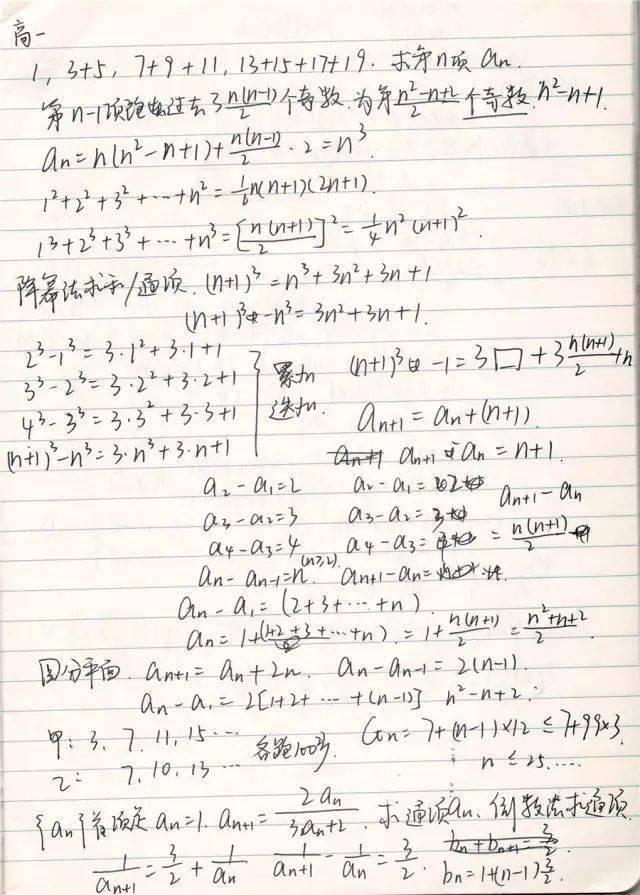 高一
1, 3+5, 7+9+11, 13+15+17+19. 求第n项 an.
第n-1项 过去 n(n-1)/2 个奇数. 为第 (n²-n+2)/2 个奇数. n²-n+1.
an = n(n²-n+1) + n(n-1)/2 · 2 = n³.
1²+2²+3²+…+n² = 1/6 n(n+1)(2n+1).
1³+2³+3³+…+n³ = [n(n+1)/2]² = 1/4 n²(n+1)².
降幂法求和/通项. (n+1)³ = n³+3n²+3n+1
(n+1)³-n³ = 3n²+3n+1.
2³-1³ = 3·1²+3·1+1
3³-2³ = 3·2²+3·2+1
4³-3³ = 3·3²+3·3+1
(n+1)³-n³ = 3·n³+3·n+1
累加 迭加. (n+1)³-1 = 3□+3 n(n+1)/2 +n
an+1 = an+(n+1).
an+1 an+1-an = n+1.
a2-a1=2 a2-a1=2 an+1-an
a3-a2=3 a3-a2=3 = n(n+1)/2
a4-a3=4 a4-a3=
an-an-1=n (n≥2). an+1-an=
an-a1=(2+3+…+n).
an=1+(1+2+3+…+n). =1+ n(n+1)/2 = (n²+n+2)/2.
圆分平面. an+1=an+2n. an-an-1=2(n-1).
an-a1=2[1+2+…+(n-1)] n²-n+2.
甲: 3, 7, 11, 15… 各跑100步. an=7+(n-1)×12≤7+99×3
乙: 7, 10, 13 … n≤25.…
{an}首项是 an=1. an+1= 2an/(3an+2). 求通项an. 倒数法求通项.
1/an+1 = 3/2 + 1/an 1/an+1 - 1/an = 3/2. bn+bn+1=3/2
bn=1+(n-1) 3/2.